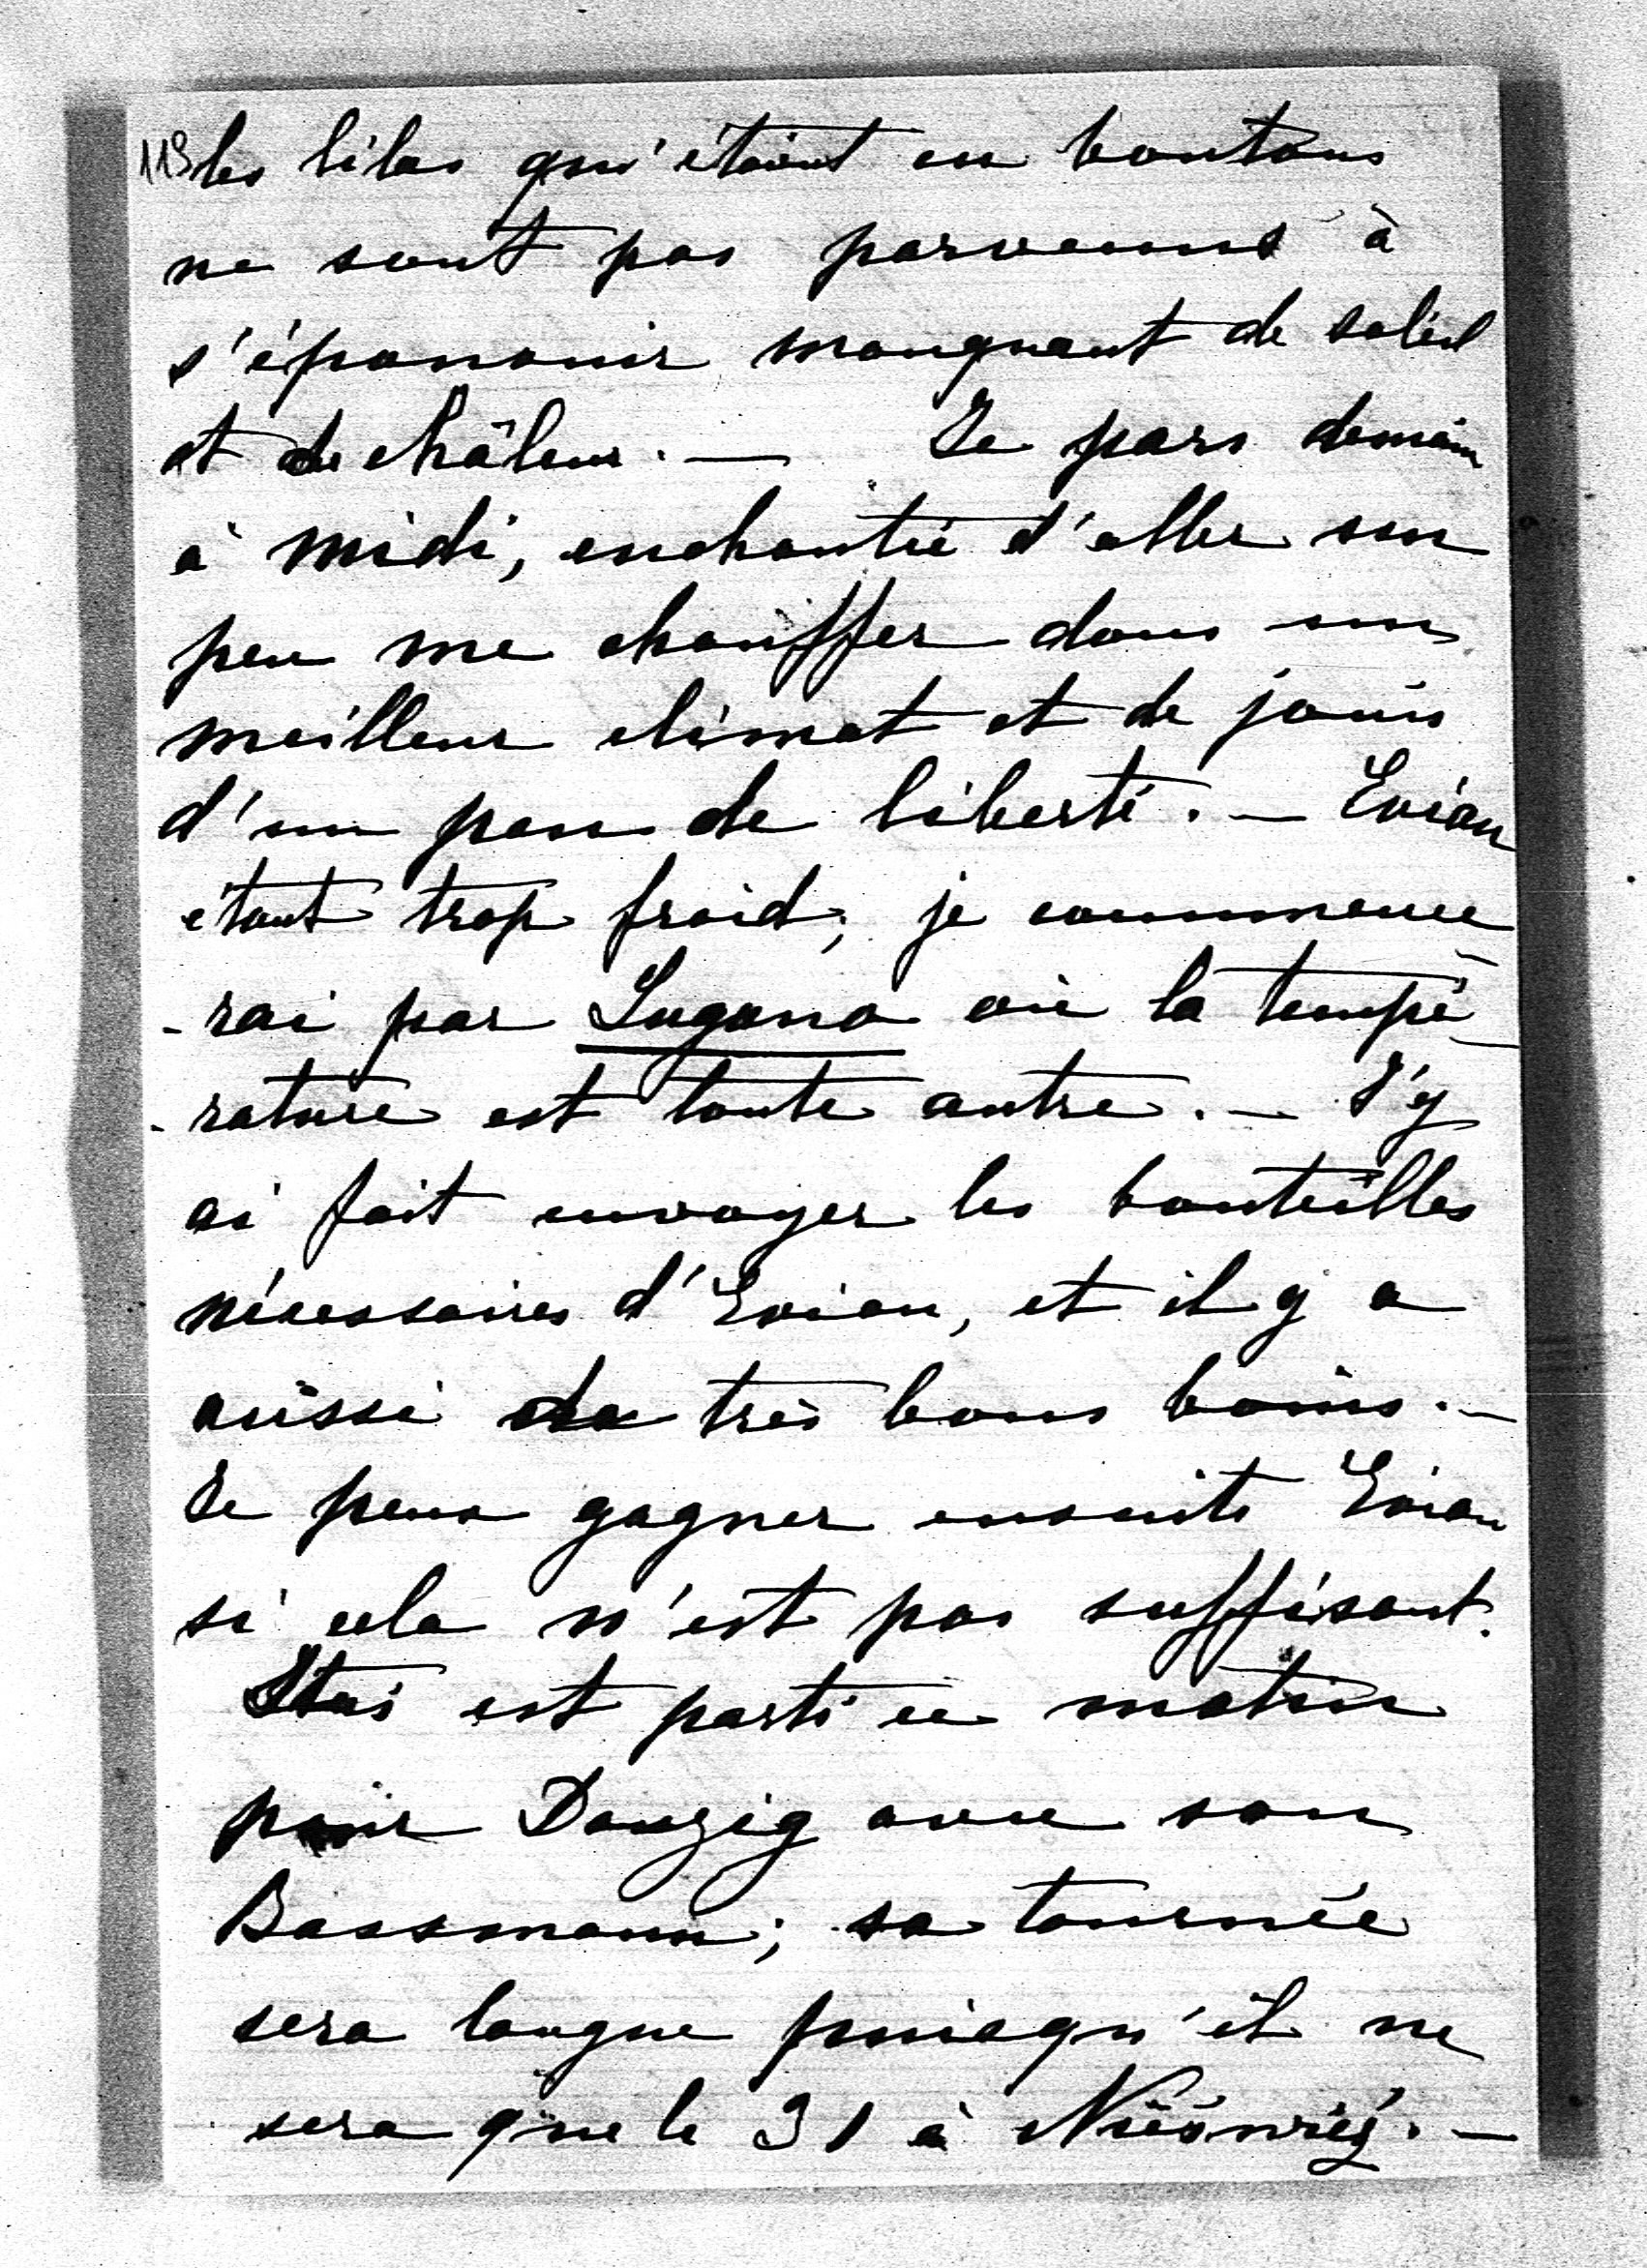 113 les lilas qui étaient en boutons
ne sont pas parvenus à
s'épanouir manquant de soleil
et de châleur. — Je pars demain
à midi, enchantée d'aller un
peu me chauffer dans un
meilleur climat et de jouir
d'un peu de liberté. — Evian
étant trop froid, je commence
-rai par Lugano où la tempé-
-rature est toute autre. — J'y
ai fait envoyer les bouteilles
nécessaires d'Evian, et il y a
aussi de très bons bains. —
Je peux gagner ensuite Evian
si cela n'est pas suffisant.
Stas est parti ce matin
pour Danzig avec son
Bassmann; sa tournée
sera longue puisqu'il ne
sera que le 31 à Nieśwież. —